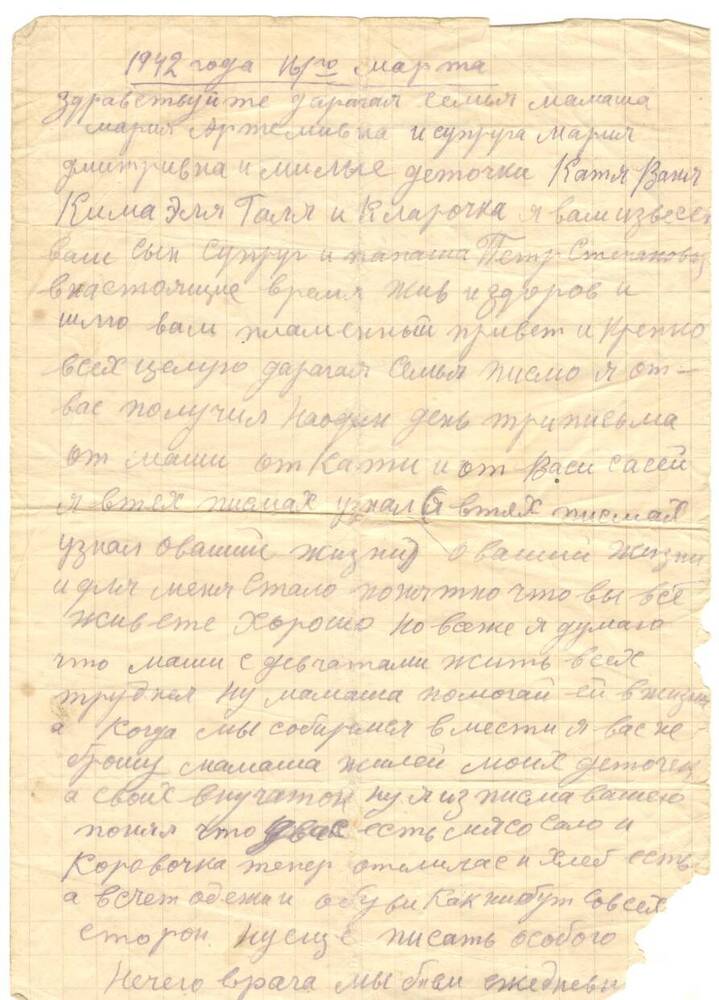 1942 года 16го марта
здравствуйте дарагая семья мамаша
мария Артемивна и супруга Мария
дмитривна и милые деточки Катя Ваня
Кима Эля Галя и Кларочка я вам извес
ваш сын супруг и папаша Петр Степанов
внастоящие время жив издоров и
шлю вам пламенный привет и крепко
всех целую дарагая семья писмо я от-
вас получил наодин день триписьма
от маши от Кати и от Васи
я втех писмах узнал (я втях писмах
узнал оваший жизни) о ваший жизни
и для меня стало понятно что вы всё
живете хорошо но всеже я думаю
что маши с девчатами жить всех
трудней ну мамаша помогай ей вжизни
а когда мы собиремся вмести я вас не
брошу мамаша жилей моих деточек
а своих внучаток ну я из писма вашего
понял что увас есть мясо сало и
Коровочка тепер отелилас и хлеб есть
а всчет одежи и обуви как нибуть совсех
сторон ну еще писать особого
Нечего врага мы бъем ежедневн